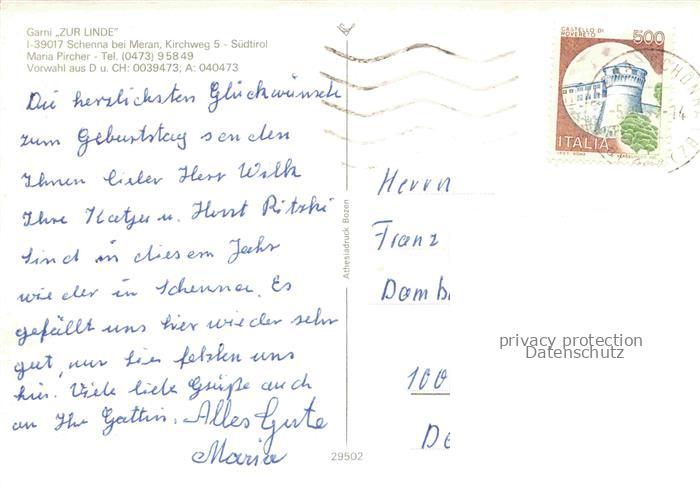 Garni „ZUR LINDE"
I-39017 Schenna bei Meran, Kirchweg 5 - Südtirol
Maria Pircher - Tel. (0473) 9 58 49
Vorwahl aus D u. CH: 0039473; A: 040473
Die herzlichsten Glückwünsche
zum Geburtstag senden
Ihnen lieber Herr Wilk
Ihre Katja u. Horst
Sind in diesem Jahr
wieder in Schenna. Es
gefällt uns hier wieder sehr
gut, nur Sie fehlten uns
hier. Viele liebe Grüße auch
an Ihre Gattin. Alles Gute
Maria
Athesiadruck Bozen
29502
CASTELLO DI
ROVERETO
500
ITALIA
Herrn
Franz
Domb
100
De
privacy protection
Datenschutz